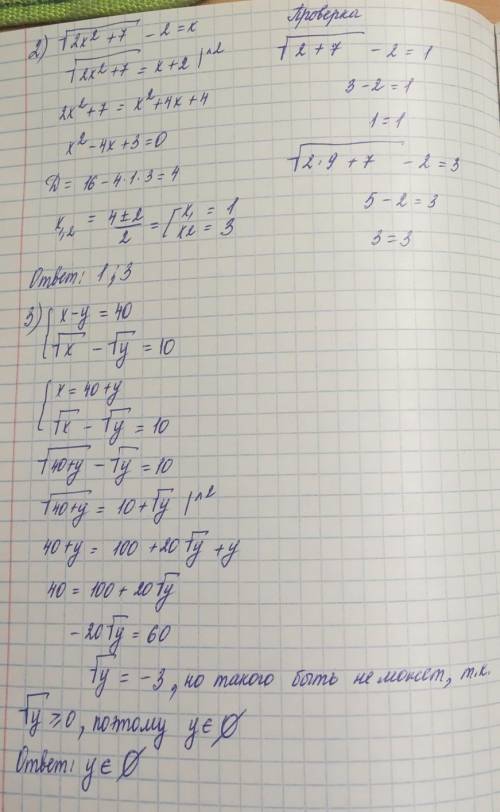 2) √(2x² + 7) - 2 = x
√(2x² + 7) = x + 2 |^2
2x² + 7 = x² + 4x + 4
x² - 4x + 3 = 0
D = 16 - 4·1·3 = 4
x₁,₂ = (4 ± 2)/2 = [x₁ = 1
x2 = 3
Ответ: 1 ; 3
Проверка
√(2 + 7) - 2 = 1
3 - 2 = 1
1 = 1
√(2·9 + 7) - 2 = 3
5 - 2 = 3
3 = 3
3) { x - y = 40
√x - √y = 10
{ x = 40 + y
√x - √y = 10
√(40+y) - √y = 10
√(40+y) = 10 + √y |^2
40 + y = 100 + 20√y + y
40 = 100 + 20√y
-20√y = 60
√y = -3, но такого быть не может, т.к.
√y ≥ 0, поэтому y ∈ ∅
Ответ: y ∈ ∅